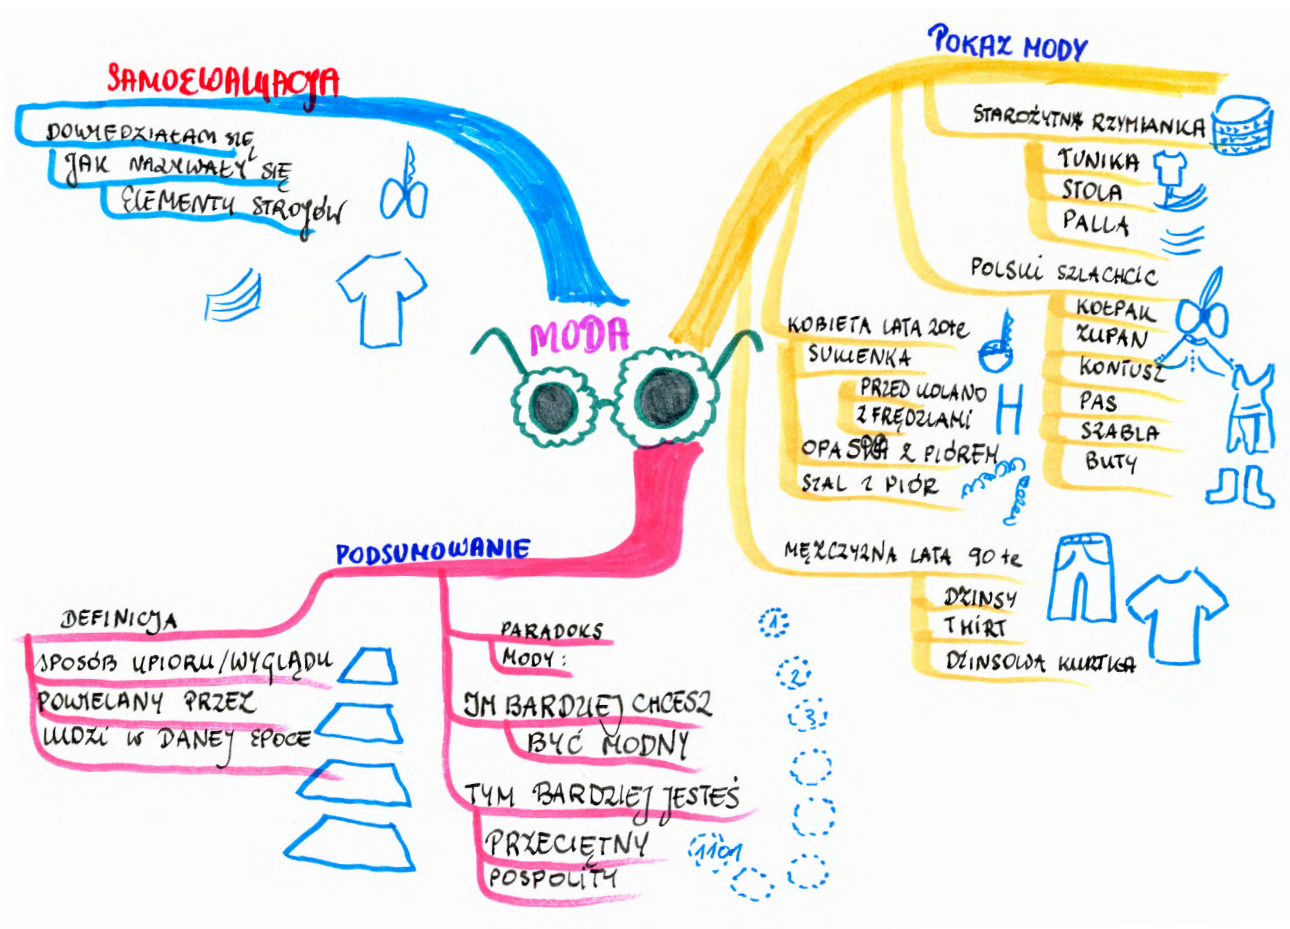 SAMOEWALUACJA
DOWIEDZIAŁAM SIĘ,
JAK NAZYWAŁY SIĘ
ELEMENTY STROJÓW
MODA
POKAZ MODY
STAROŻYTNA RZYMIANKA
TUNIKA
STOLA
PALLA
POLSKI SZLACHCIC
KOŁPAK
ŻUPAN
KONTUSZ
PAS
SZABLA
BUTY
KOBIETA LATA 20te
SUKIENKA
PRZED KOLANO
Z FRĘDZLAMI
OPASKA Z PIÓREM
SZAL Z PIÓR
MĘŻCZYZNA LATA 90te
DŻINSY
T HIRT
DŻINSOWA KURTKA
PODSUMOWANIE
DEFINICJA
SPOSÓB UBIORU/WYGLĄDU
POWIELANY PRZEZ
LUDZI W DANEJ EPOCE
PARADOKS
MODY:
IM BARDZIEJ CHCESZ
BYĆ MODNY
TYM BARDZIEJ JESTEŚ
PRZECIĘTNY
POSPOLITY
1
2
3
1101